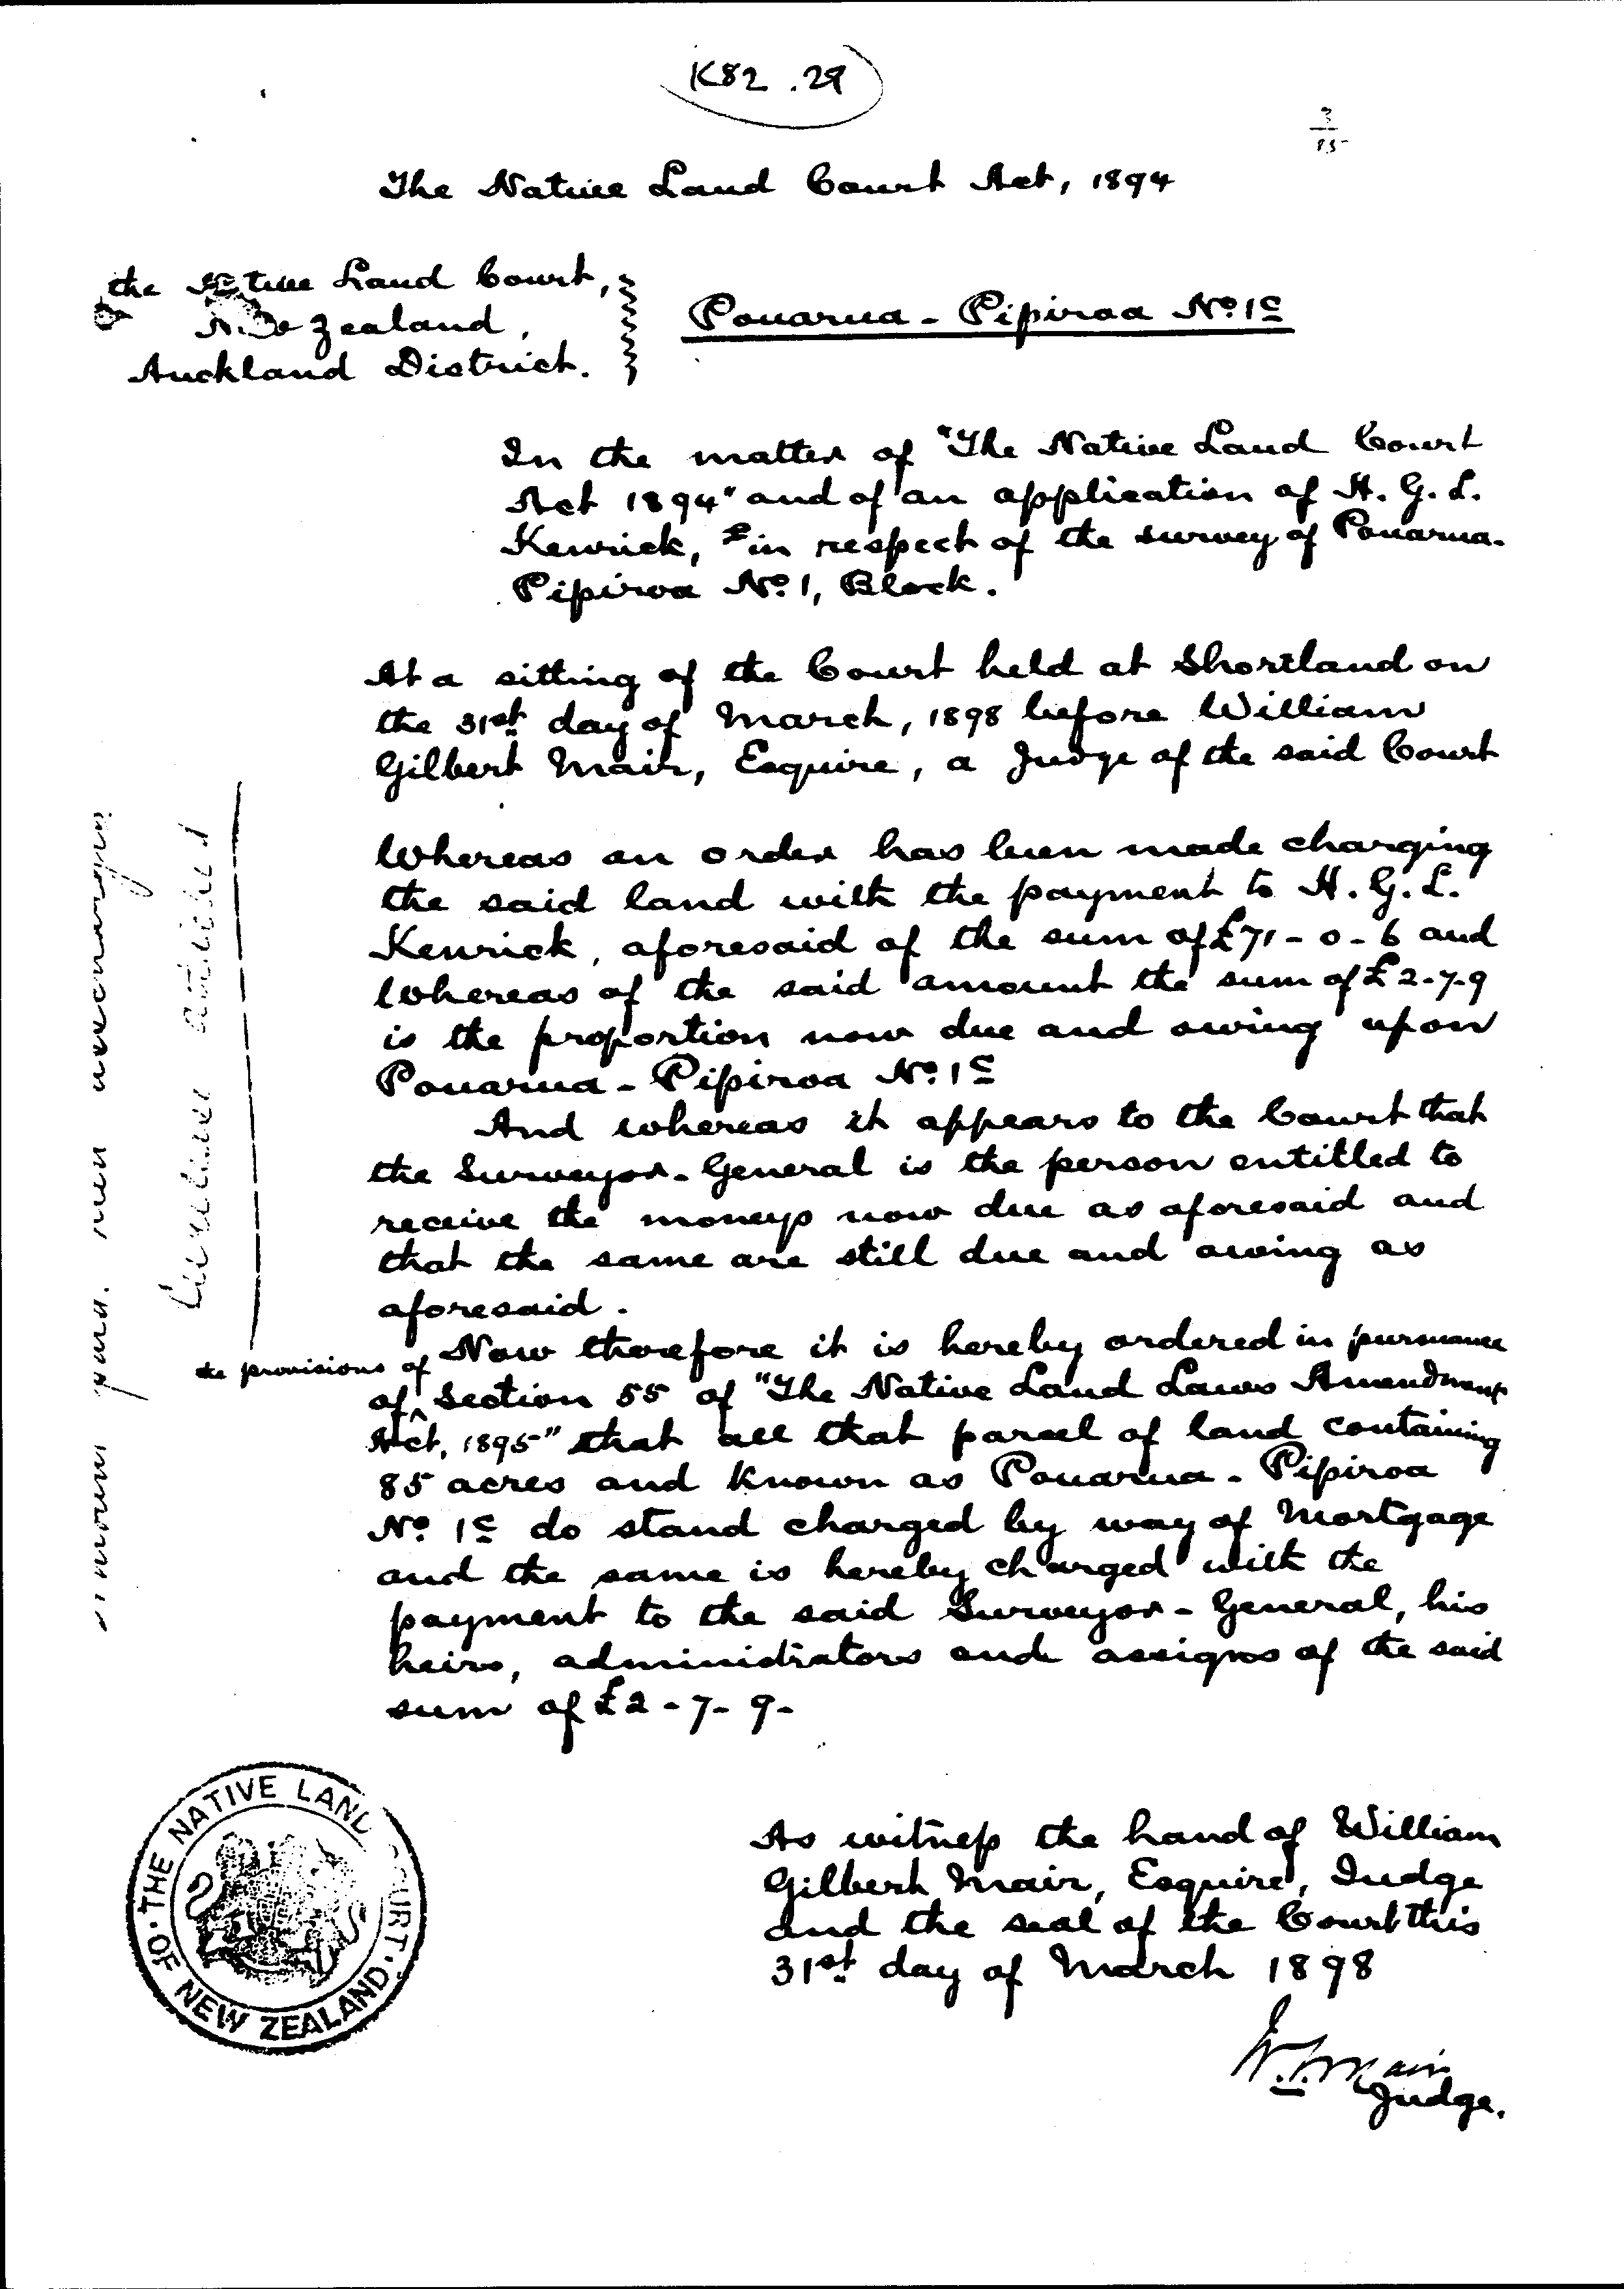 K82.29
3
85
The Native Land Court Act, 1894
the Native Land Court,
New Zealand,
Auckland District.
Pouarua - Pipiroa No. 1C
In the matter of "The Native Land Court
Act 1894" and of an application of H. G. L.
Kenrick, in respect of the survey of Pouarua-
Pipiroa No. 1, Block.
At a sitting of the Court held at Shortland on
the 31st day of March, 1898 before William
Gilbert Mair, Esquire, a Judge of the said Court
Whereas an order has been made charging
the said land with the payment to H. G. L.
Kenrick, aforesaid of the sum of £71-0-6 and
Whereas of the said amount the sum of £2-7-9
is the proportion now due and owing upon
Pouarua - Pipiroa No. 1C
And whereas it appears to the Court that
the Surveyor-General is the person entitled to
receive the moneys now due as aforesaid and
that the same are still due and owing as
aforesaid.
Now therefore it is hereby ordered in pursuance
of the provisions of Section 55 of "The Native Land Laws Amendment
Act, 1895" that all that parcel of land containing
85 acres and known as Pouarua - Pipiroa
No. 1C do stand charged by way of Mortgage
and the same is hereby charged with the
payment to the said Surveyor-General, his
heirs, administrators and assigns of the said
sum of £2-7-9-
THE NATIVE LAND COURT
OF NEW ZEALAND
As witness the hand of William
Gilbert Mair, Esquire, Judge
and the seal of the Court this
31st day of March 1898
W. G. Mair
Judge.